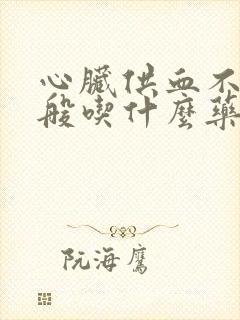 心臟供血不
般喫什麼藥
阮海鷹